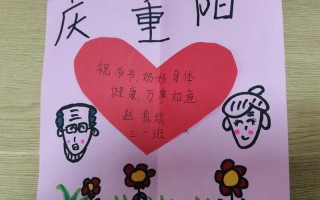 庆重阳
祝爷爷、奶奶身体
健康,万事如意
赵
三一班